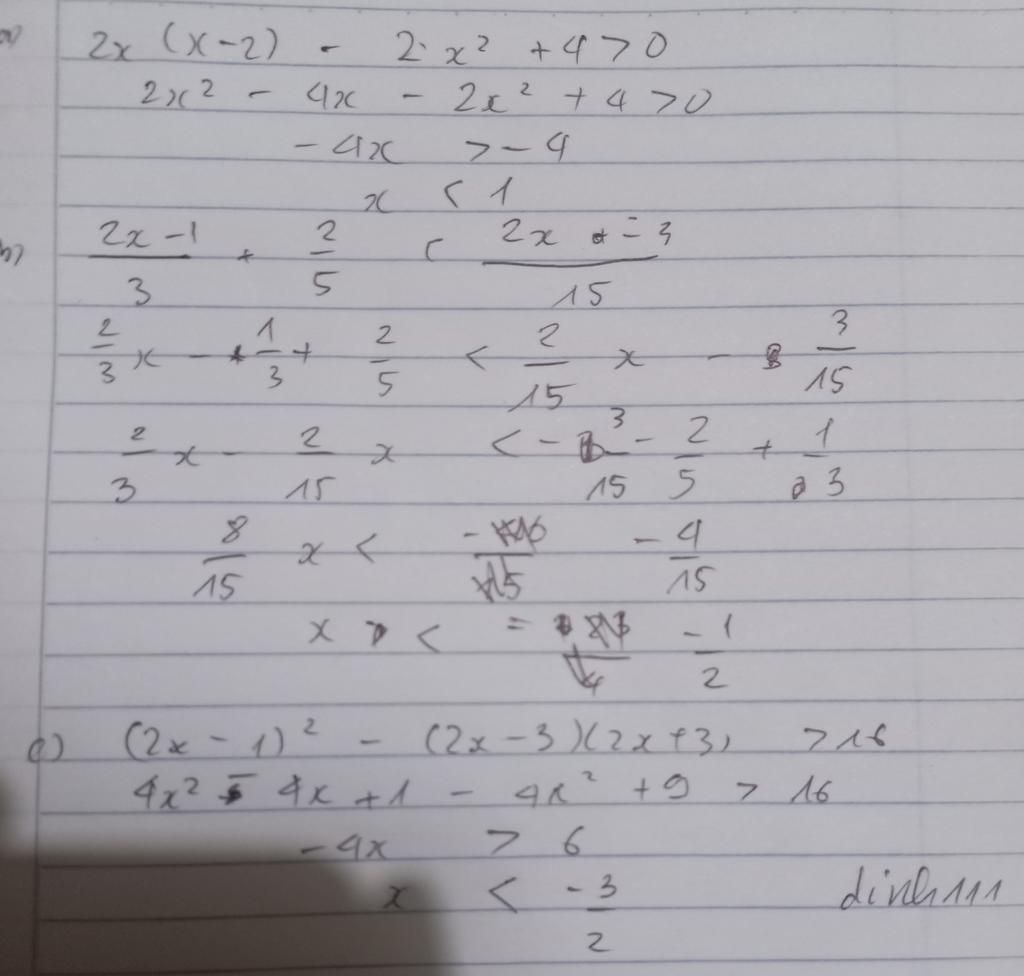 a) 2x (x-2) - 2·x² + 4 > 0
2x² - 4x - 2x² + 4 > 0
-4x > -4
x < 1
b) (2x-1)/3 + 2/5 < (2x - 3)/15
2/3 x - 1/3 + 2/5 < 2/15 x - 3/15
2/3 x - 2/15 x < - 3/15 - 2/5 + 1/3
8/15 x < -4/15
x < -1/2
c) (2x-1)² - (2x-3)(2x+3) > 16
4x² - 4x + 1 - 4x² + 9 > 16
-4x > 6
x < -3/2
dinh111